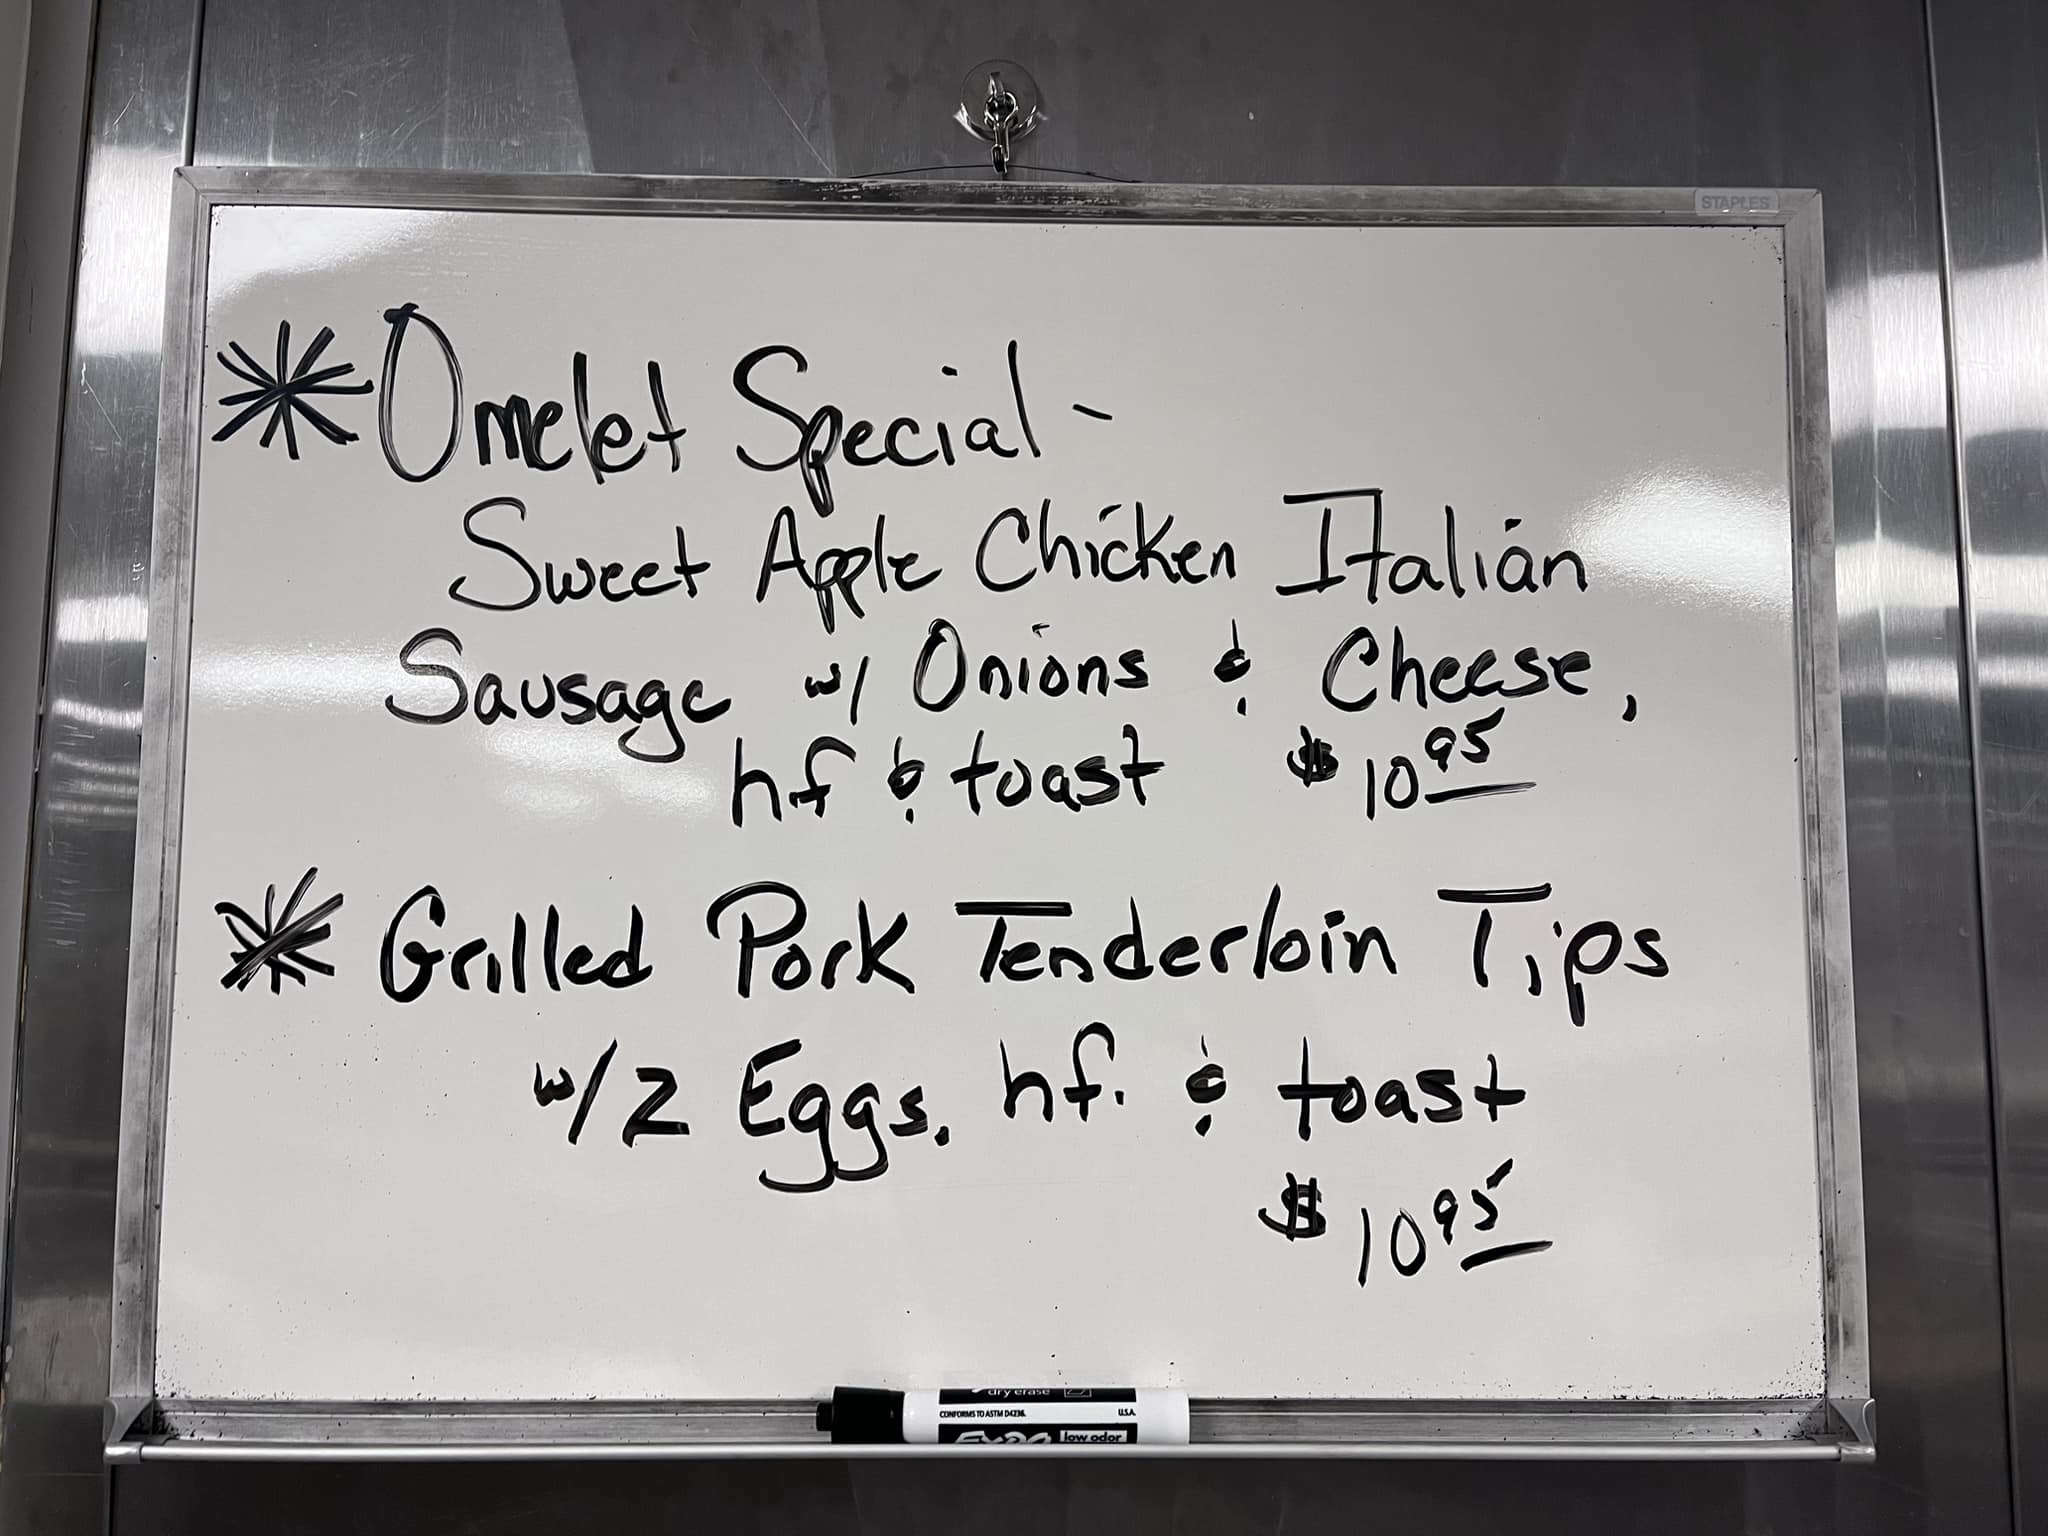 STAPLES
* Omelet Special -
Sweet Apple Chicken Italian
Sausage w/ Onions & Cheese,
hf & toast $10 95
* Grilled Pork Tenderloin Tips
w/ 2 Eggs, hf. & toast
$10 95
dry erase
CONFORMS TO ASTM D4236. U.S.A.
EXPO low odor